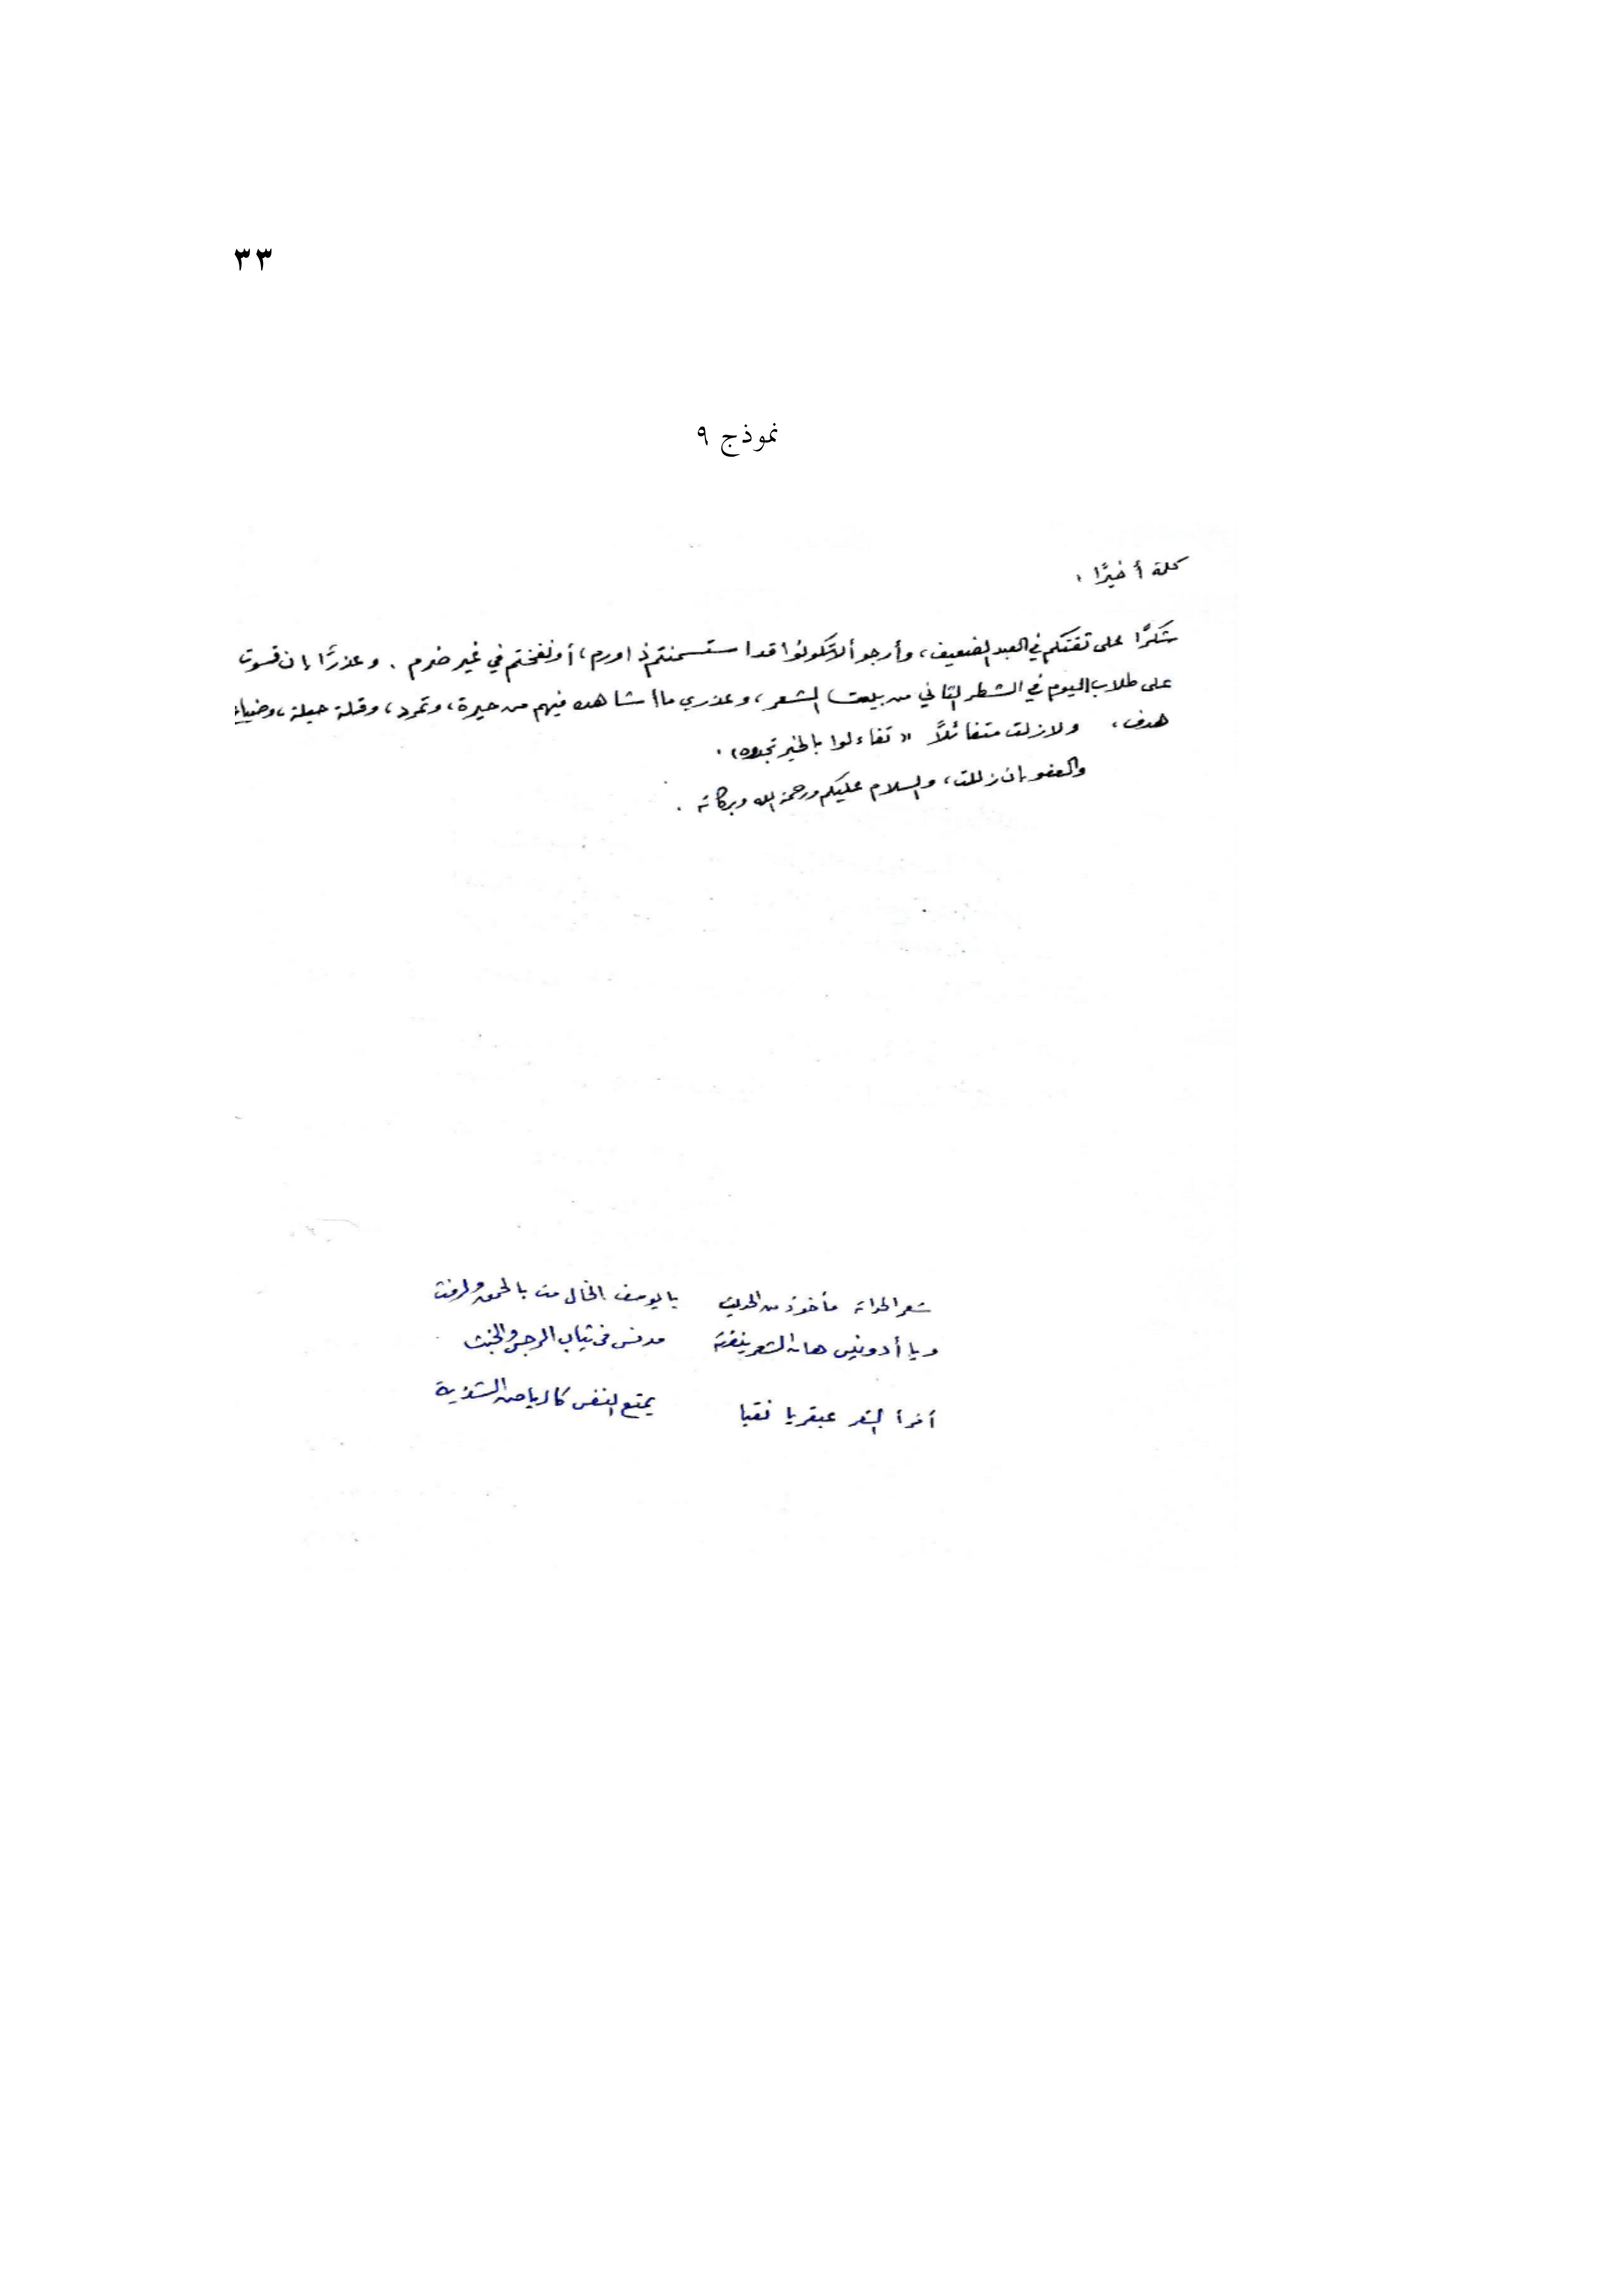 ٣٣
نموذج ٩
كلمة أخيرًا :
شكرًا على ثقتكم في العبد الضعيف، وأرجو ألا تكونوا قد استسمنتم ذا ورم، أو نفختم في غير ضرم . وعذرًا إن قسوت
على طلاب اليوم في الشطر الثاني من بيت الشعر، وعذري ما أشاهده فيهم من حيرة، وتمرد، وقلة حيلة، وضياع
هدف، ولازلت متفائلًا « تفاءلوا بالخير تجدوه» .
والعفو إن زللت، والسلام عليكم ورحمة الله وبركاته .
شعر الحداثة مأخوذ من الحدث يا يوسف الخال مت بالحمق والرفث
ويا أدونيس هات الشعر ننفثه مدنس في ثياب الرجس والخبث
أقرأ الشعر عبقريا نقيا يمتع النفس كالرياض الشذية